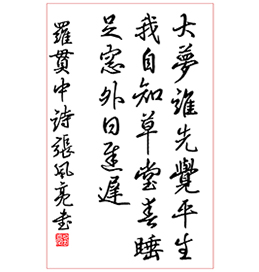 大夢誰先覺平生
我自知草堂春睡
足窓外日遲遲
羅貫中詩張風亮書